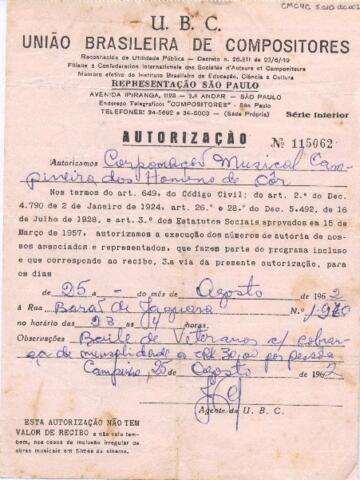 U. B. C.
UNIÃO BRASILEIRA DE COMPOSITORES
Reconhecida de Utilidade Pública — Decreto n. 26.811 de 23/6/49
Filiada a Confederation Internationale des Sociétés d'Auteurs et Compositeurs
Membro efetivo do Instituto Brasileiro de Educação, Ciência e Cultura
REPRESENTAÇÃO SÃO PAULO
AVENIDA IPIRANGA, 1123 — ANDAR — SÃO PAULO
Endereço Telegráfico: "COMPOSITORES" — São Paulo
TELEFONES: 34-5692 e 34-6003 — (Séde Própria)
Série Interior
AUTORIZAÇÃO
Nº 115062
Autorizamos Corporação Musical Cam-
pineira dos Homens de Côr
Nos termos do art. 649, do Código Civil; do art. 2.º do Dec.
4.790 de 2 de Janeiro de 1924, art. 26.º e 28.º do Dec. 5.492, de 16
de Julho de 1928, e art. 3.º dos Estatutos Sociais aprovados em 15 de
Março de 1957, autorizamos a execução dos números de autoria de nos-
sos associados e representados, que fazem parte do programa incluso
e que corresponde ao recibo, 3.a via da presente autorização, para
os dias
de 25 a - do mês de Agosto de 1962
à Rua Barão de Jaguara N.º 1.920
no horário das 23 às 4 horas.
Observações Baile de Veteranos c/ cobran-
ça de mensalidade a 30,00 por pessoa
Campinas, 25 de Agosto de 1962
Agente da U. B. C.
ESTA AUTORIZAÇÃO NÃO TEM
VALOR DE RECIBO e não vale tam-
bém, nos casos de inclusão irregular de
obras musicais em filmes de cinema.